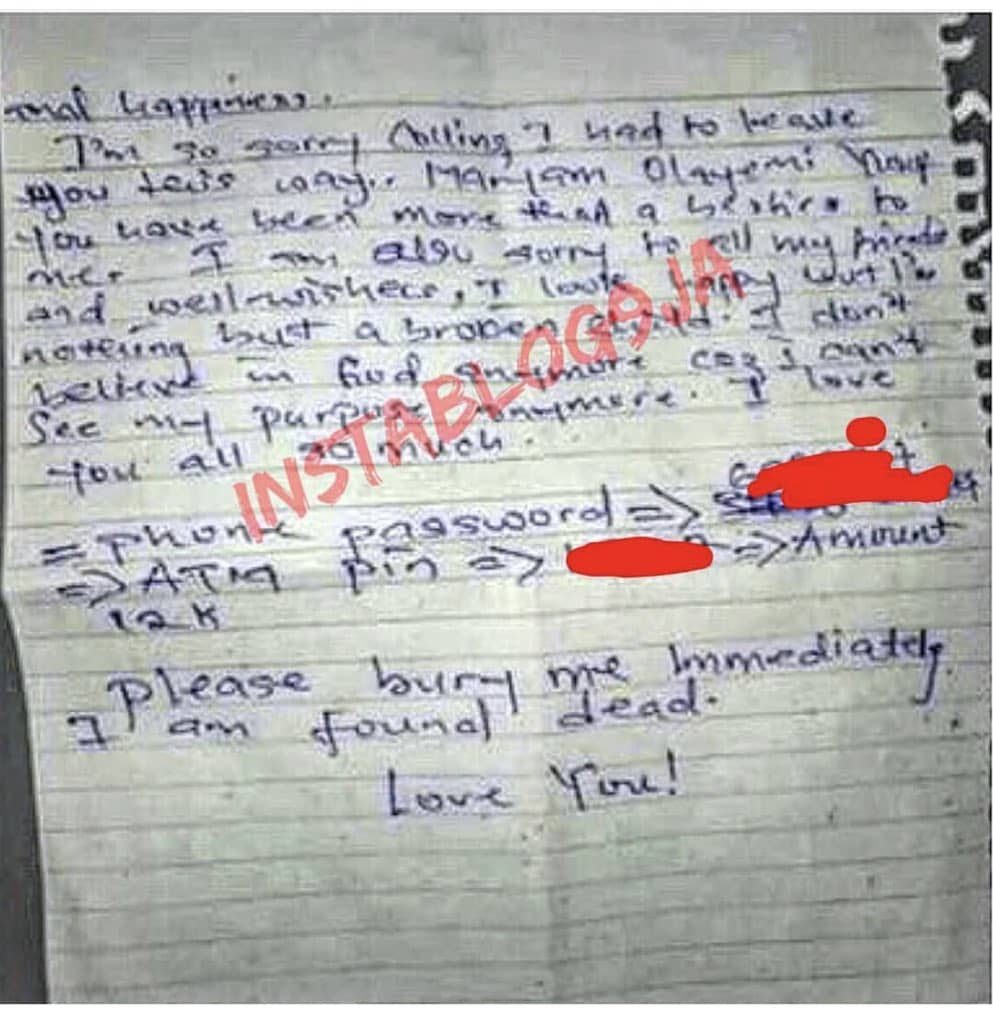 onal happiness.
I'm so sorry Colling I had to leave
you this way.. Maryam Olayemi
You have been more than a besties to
me. I am also sorry to all my friends
and well-wishers, I look happy but I'm
nothing but a broken child. I don't
believe in God anymore coz I can't
See my purpose anymore. I love
you all so much.
INSTABLOG9JA
=> phone password =>
=> ATM pin => => Amount
12K
please bury me immediately
I am found dead.
Love You!